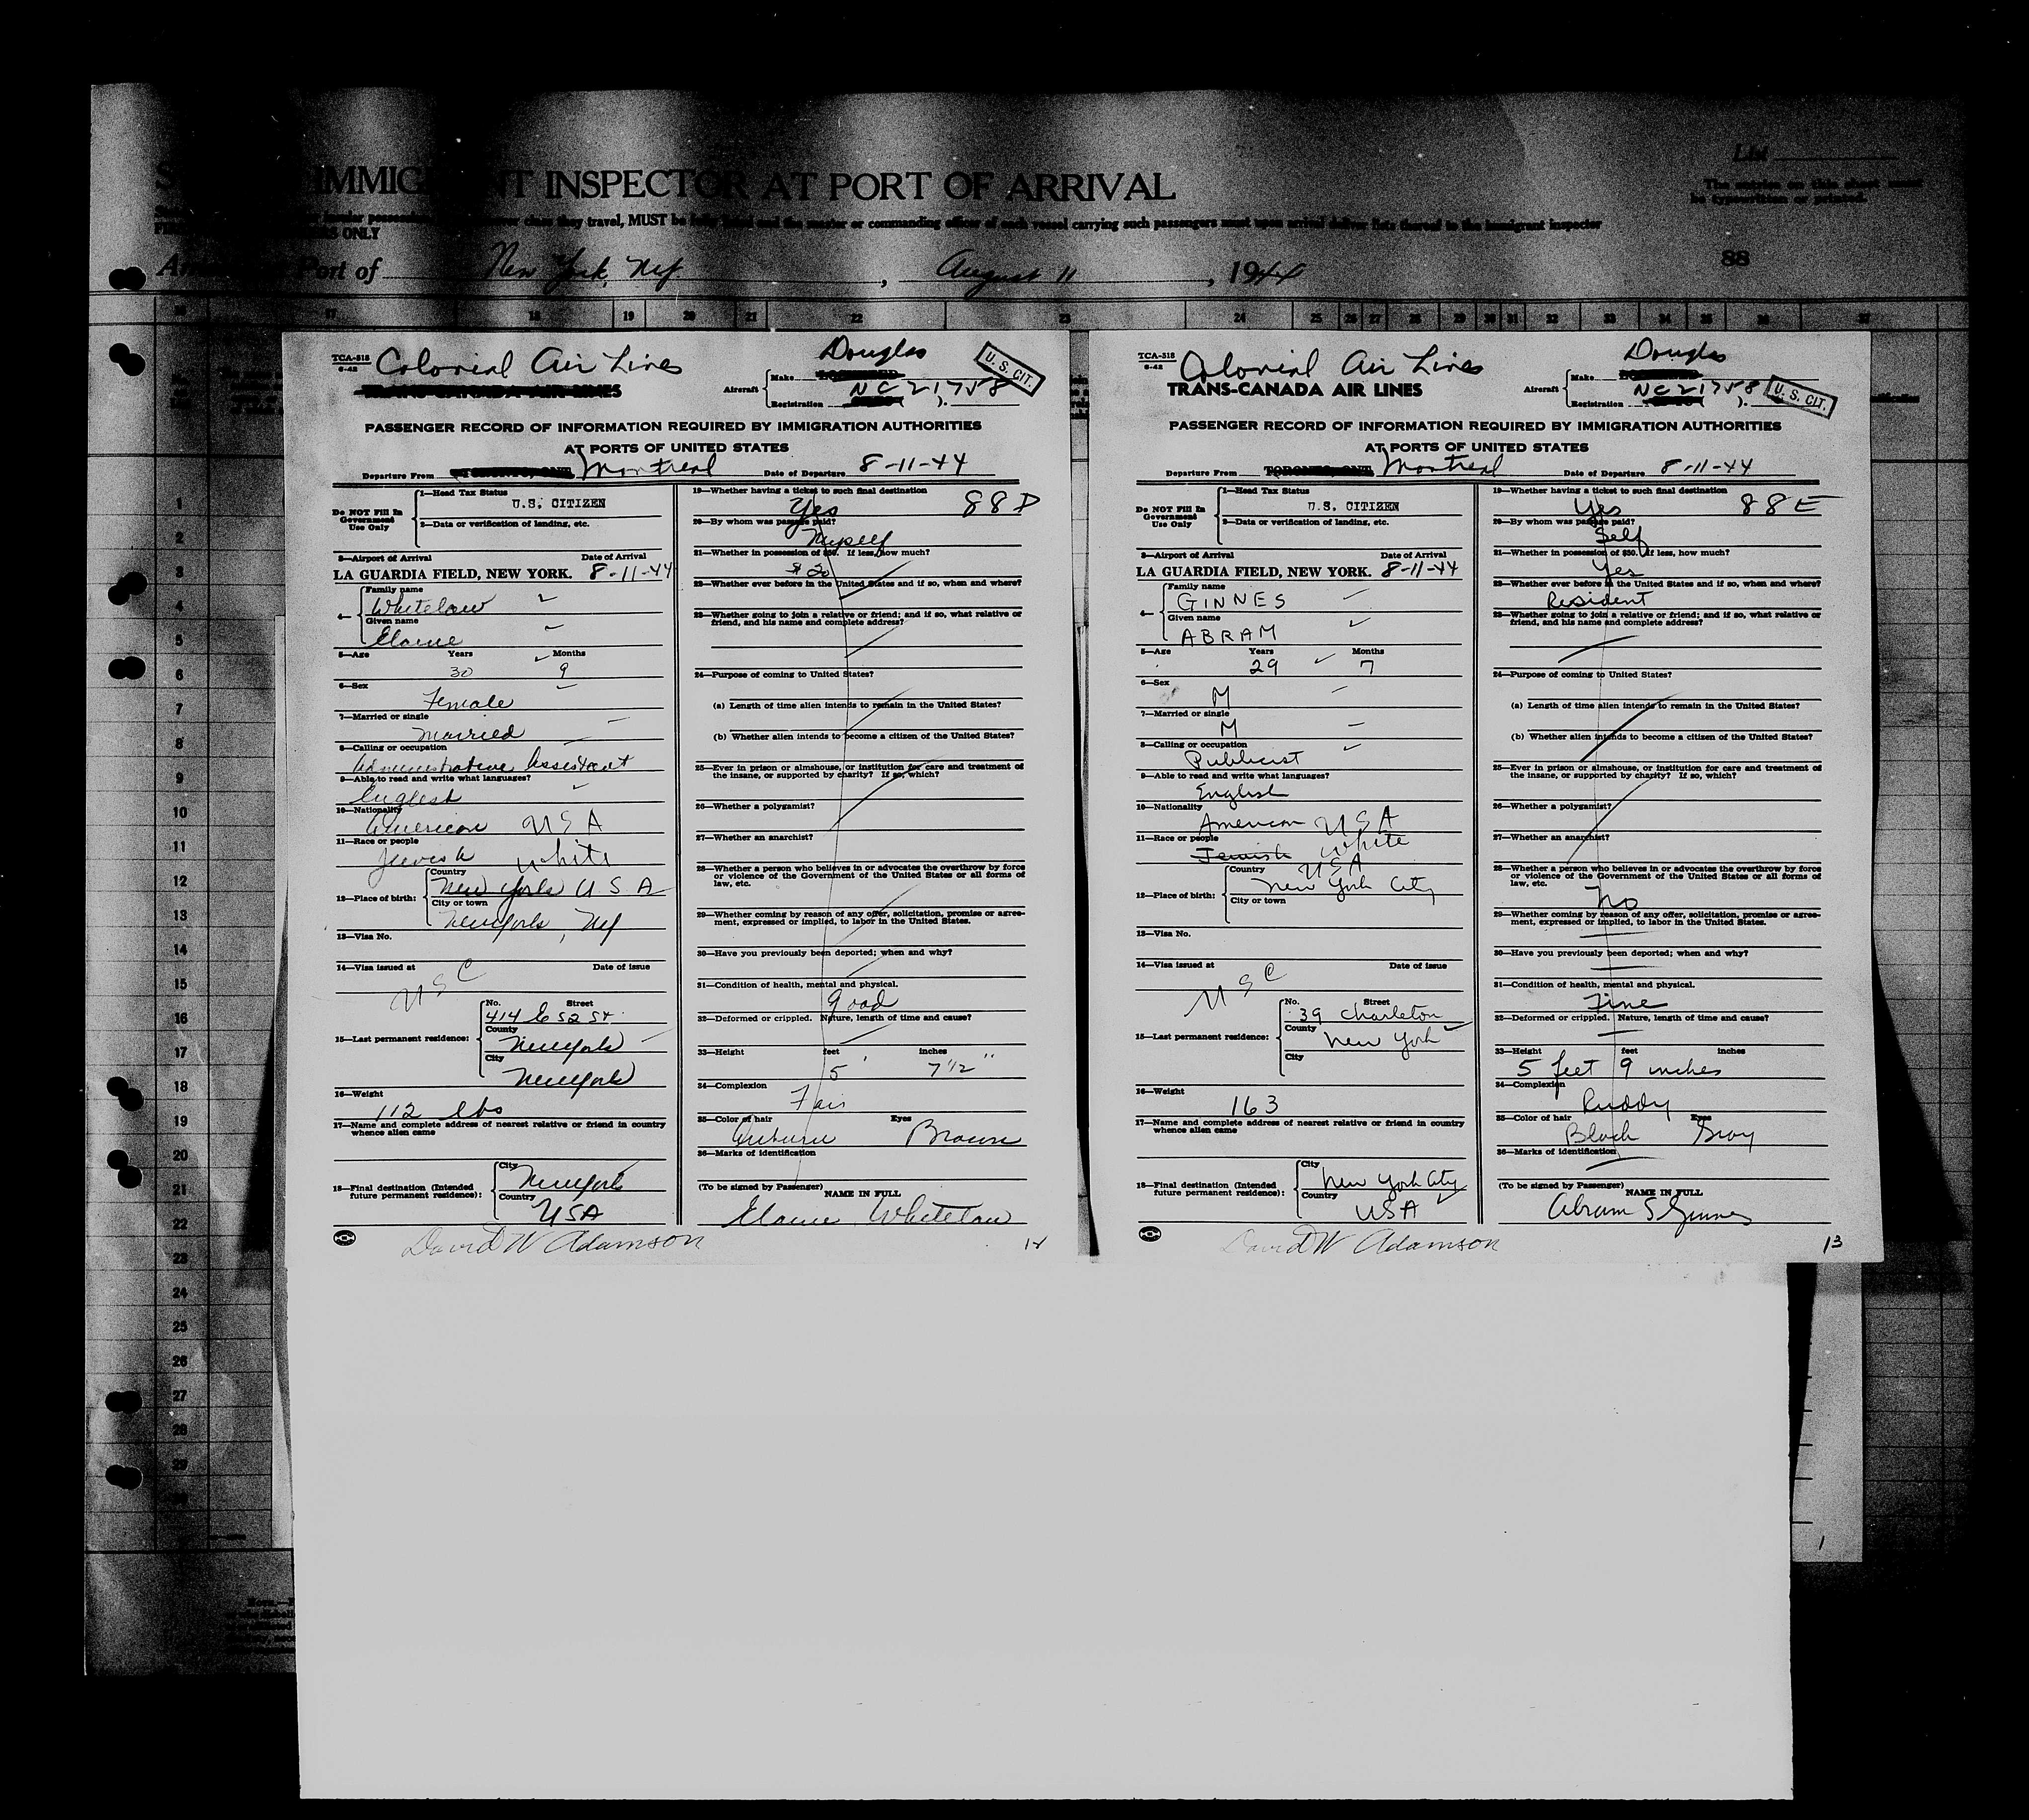 IMMIGRANT INSPECTOR AT PORT OF ARRIVAL
List
The entries on this sheet must
be typewritten or printed.
class they travel, MUST be fully listed and the master or commanding officer of each vessel carrying such passengers must upon arrival deliver lists thereof to the immigrant inspector
ONLY
Port of New York, NY. , August 11 , 1944
88
17 18 19 20 21 22 23 24 25 26 27 28 29 30 31 32 33 34 35 36 37
TCA-318
6-42
Colonial Air Lines
TRANS-CANADA AIR LINES
Douglas
Aircraft Make
NC 21758
Registration ( ).
U. S. CIT.
PASSENGER RECORD OF INFORMATION REQUIRED BY IMMIGRATION AUTHORITIES
AT PORTS OF UNITED STATES
Departure From TORONTO, ONT. Montreal Date of Departure 8-11-44
Do NOT Fill In Government Use Only
1—Head Tax Status
U.S. CITIZEN
2—Data or verification of landing, etc.
3—Airport of Arrival Date of Arrival
LA GUARDIA FIELD, NEW YORK. 8-11-44
4— Family name
Whitelaw
Given name
Elaine
5—Age Years Months
30 9
6—Sex
Female
7—Married or single
Married
8—Calling or occupation
Administrative Assistant
9—Able to read and write what languages?
English
10—Nationality
American USA
11—Race or people
Jewish White
12—Place of birth: Country
New York USA
City or town
New York, NY
13—Visa No.
14—Visa issued at Date of issue
USC
15—Last permanent residence: No. Street
414 E 52 St.
County
New York
City
New York
16—Weight
112 lbs
17—Name and complete address of nearest relative or friend in country
whence alien came
18—Final destination (Intended
future permanent residence): City
New York
Country
USA
David W Adamson
19—Whether having a ticket to such final destination
Yes 88D
20—By whom was passage paid?
Myself
21—Whether in possession of $50. If less, how much?
22—Whether ever before in the United States and if so, when and where?
23—Whether going to join a relative or friend; and if so, what relative or
friend, and his name and complete address?
24—Purpose of coming to United States?
(a) Length of time alien intends to remain in the United States?
(b) Whether alien intends to become a citizen of the United States?
25—Ever in prison or almshouse, or institution for care and treatment of
the insane, or supported by charity? If so, which?
26—Whether a polygamist?
27—Whether an anarchist?
28—Whether a person who believes in or advocates the overthrow by force
or violence of the Government of the United States or all forms of
law, etc.
29—Whether coming by reason of any offer, solicitation, promise or agree-
ment, expressed or implied, to labor in the United States.
30—Have you previously been deported; when and why?
31—Condition of health, mental and physical.
Good
32—Deformed or crippled. Nature, length of time and cause?
33—Height feet inches
5' 7 1/2"
34—Complexion
Fair
35—Color of hair Eyes
Auburn Brown
36—Marks of identification
(To be signed by Passenger) NAME IN FULL
Elaine Whitelaw
TCA-318
6-42
Colonial Air Lines
TRANS-CANADA AIR LINES
Douglas
Aircraft Make
NC 21758
Registration ( ).
U. S. CIT.
PASSENGER RECORD OF INFORMATION REQUIRED BY IMMIGRATION AUTHORITIES
AT PORTS OF UNITED STATES
Departure From TORONTO, ONT. Montreal Date of Departure 8-11-44
Do NOT Fill In Government Use Only
1—Head Tax Status
U.S. CITIZEN
2—Data or verification of landing, etc.
3—Airport of Arrival Date of Arrival
LA GUARDIA FIELD, NEW YORK. 8-11-44
4— Family name
GINNES
Given name
ABRAM
5—Age Years Months
29 7
6—Sex
M
7—Married or single
M
8—Calling or occupation
Publicist
9—Able to read and write what languages?
English
10—Nationality
American USA
11—Race or people
Jewish White
12—Place of birth: Country
USA
New York City
City or town
13—Visa No.
14—Visa issued at Date of issue
USC
15—Last permanent residence: No. Street
39 Charleton
County
New York
City
16—Weight
163
17—Name and complete address of nearest relative or friend in country
whence alien came
18—Final destination (Intended
future permanent residence): City
New York City
Country
USA
David W Adamson
19—Whether having a ticket to such final destination
Yes 88E
20—By whom was passage paid?
Self
21—Whether in possession of $50. If less, how much?
Yes
22—Whether ever before in the United States and if so, when and where?
Resident
23—Whether going to join a relative or friend; and if so, what relative or
friend, and his name and complete address?
24—Purpose of coming to United States?
(a) Length of time alien intends to remain in the United States?
(b) Whether alien intends to become a citizen of the United States?
25—Ever in prison or almshouse, or institution for care and treatment of
the insane, or supported by charity? If so, which?
26—Whether a polygamist?
27—Whether an anarchist?
28—Whether a person who believes in or advocates the overthrow by force
or violence of the Government of the United States or all forms of
law, etc.
No
29—Whether coming by reason of any offer, solicitation, promise or agree-
ment, expressed or implied, to labor in the United States.
30—Have you previously been deported; when and why?
31—Condition of health, mental and physical.
Fine
32—Deformed or crippled. Nature, length of time and cause?
33—Height feet inches
5 feet 9 inches
34—Complexion
Ruddy
35—Color of hair Eyes
Black Gray
36—Marks of identification
(To be signed by Passenger) NAME IN FULL
Abram S Ginnes
13
1
2
3
4
5
6
7
8
9
10
11
12
13
14
15
16
17
18
19
20
21
22
23
24
25
26
27
28
29
30